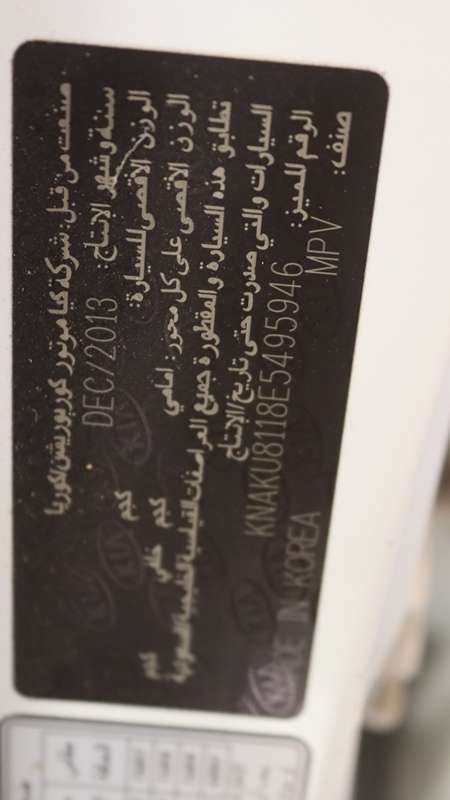 صنعت من قبل: شركة كيا موتور كوربوريشن/كوريا
سنة وشهر الإنتاج: DEC/2013
الوزن الأقصى للسيارة: كجم
الوزن الأقصى على كل محور: امامي كجم خلفي كجم
تطابق هذه السيارة والمقطورة جميع المواصفات القياسية الخليجية السعودية
السيارات والتي صدرت حتى تاريخ الإنتاج
الرقم المميز: KNAKU8118E5495946
صنف: MPV
IN KOREA
KIA